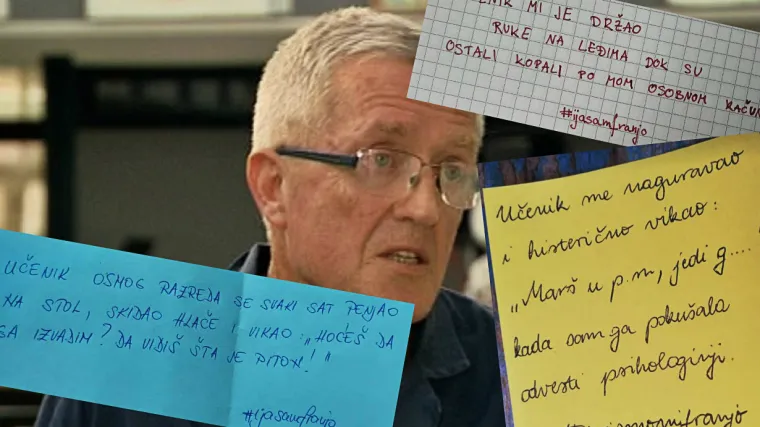 ENIK MI JE DRŽAO
RUKE NA LEĐIMA DOK SU
OSTALI KOPALI PO MOM OSOBNOM RAČUN
#ijasamfranjo
Učenik me naguravao
i histerično vikao:
"Marš u p.m, jedi g....
kada sam ga pokušala
odvesti psihologinji.
UČENIK OSMOG RAZREDA SE SVAKI SAT PENJAO
NA STOL, SKIDAO HLAČE I VIKAO: "HOĆEŠ DA
GA IZVADIM? DA VIDIŠ ŠTA JE PITON!"
#ijasamfranjo